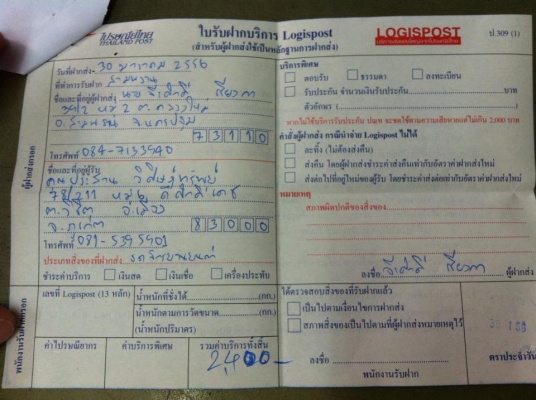 ไปรษณีย์ไทย
THAILAND POST
ใบรับฝากบริการ Logispost
(สำหรับผู้ฝากส่งใช้เป็นหลักฐานการฝากส่ง)
LOGISPOST
ป.309 (1)
วันที่ฝากส่ง 30 มกราคม 2556
ที่ทำการรับฝาก
ชื่อและที่อยู่ผู้ฝากส่ง นาย
73110
โทรศัพท์ 084-7133540
ชื่อและที่อยู่ผู้รับ
78/211 หมู่
ต.วิชิต อ.เมือง
จ.ภูเก็ต 83000
โทรศัพท์ 081-5395901
ประเภทสิ่งของที่ฝากส่ง รถจักรยานยนต์
ชำระค่าบริการ เงินสด เงินเชื่อ เครื่องประทับ
ผู้ฝากส่งกรอก
บริการพิเศษ
ตอบรับ ธรรมดา ลงทะเบียน
รับประกัน จำนวนเงินรับประกัน บาท
ตัวอักษร ( )
หากไม่ใช้บริการรับประกัน ปณท จะชดใช้ตามความเสียหายแต่ไม่เกิน 2,000 บาท
คำสั่งผู้ฝากส่ง กรณีนำจ่าย Logispost ไม่ได้
ละทิ้ง (ไม่ต้องส่งคืน)
ส่งคืน โดยผู้ฝากส่งชำระค่าส่งคืนเท่ากับอัตราค่าฝากส่งใหม่
ส่งต่อไปที่อยู่ใหม่ของผู้รับ โดยชำระค่าส่งต่อเท่ากับอัตราค่าฝากส่งใหม่
หมายเหตุ
สภาพผิดปกติของสิ่งของ
ลงชื่อ ผู้ฝากส่ง
เลขที่ Logispost (13 หลัก)
น้ำหนักที่ชั่งได้ (กก.)
น้ำหนักตามการวัดขนาด (กก.)
(น้ำหนักปริมาตร)
ค่าไปรษณียากร ค่าบริการพิเศษ รวมค่าบริการทั้งสิ้น
2,400-
พนักงานรับฝากกรอก
ได้ตรวจสอบสิ่งของที่รับฝากแล้ว
เป็นไปตามเงื่อนไขการฝากส่ง
สภาพสิ่งของเป็นไปตามที่ผู้ฝากส่งหมายเหตุไว้
ลงชื่อ
พนักงานรับฝาก
ตราประจำวัน